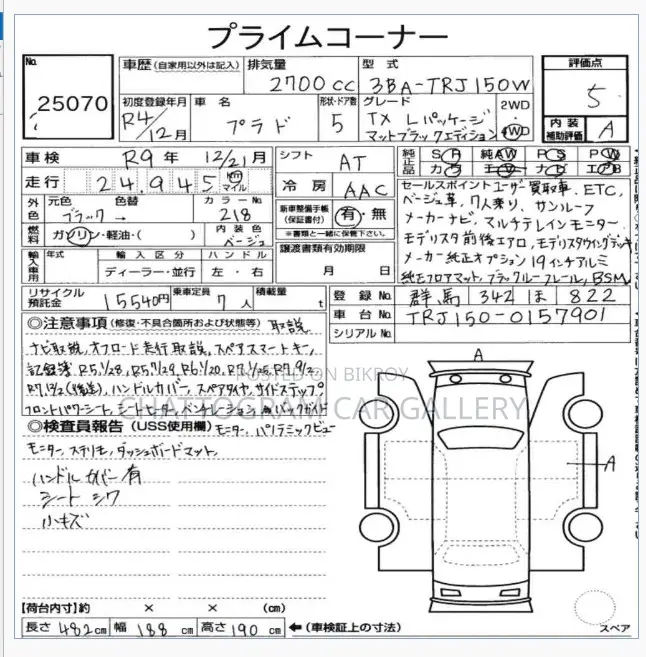 プライムコーナー
No.
25070
車歴 (自家用以外は記入)
排気量
2700cc
型式
3BA-TRJ150W
評価点
5
初度登録年月
R4/12月
車名
プラド
形状・ドア数
5
グレード
TX Lパッケージ
マットブラックエディション
2WD
4WD
内装補助評価
A
車検
R9年 12/21月
シフト
AT
純正品
SR 純AW PS PW
カラ ナビ エアB
走行
24,945 km マイル
冷房
AAC
セールスポイント ユーザー買取車、ETC、
ベージュ革、7人乗り、サンルーフ
メーカーナビ、マルチテレインモニター
モデリスタ前後エアロ、モデリスタウイングデッキ
メーカー純正オプション19インチアルミ
純正フロアマット、ブラックルーフレール、BSM
外色
元色
ブラック→
色替
カラーNo.
218
新車整備手帳
(保証書付)
有・無
※書類と一緒に保管下さい。
燃料
ガソリン・軽油・( )
内装色
ベージュ
譲渡書類有効期限
月 日
輸入車用
年式
輸入区分
ディーラー・並行
ハンドル
左・右
リサイクル預託金
15540円
乗車定員
7人
積載量
t
登録No.
群馬 342 ほ 822
車台No.
TRJ150-0157901
シリアルNo.
◎注意事項 (修復・不具合箇所および状態等) 取説
ナビ取説、オフロード走行取説、スペアスマートキー、
記録簿 R5.1/28, R5.7/29, R6.1/20,
ハンドルカバー、スペアタイヤ、サイドステップ
フロントパワーシート、シートヒーター、ベンチレーション
◎検査員報告 (USS使用欄) モニター、パノラミックビュー
モニター、ダッシュボードマット、
ハンドルカバー有
シート シワ
小キズ
POSTED ON BIKROY
CHATTOGRAM CAR GALLERY
A
A
【荷台内寸】約 × × (cm)
長さ 482cm 幅 188cm 高さ 190cm ←(車検証上の寸法)
スペア